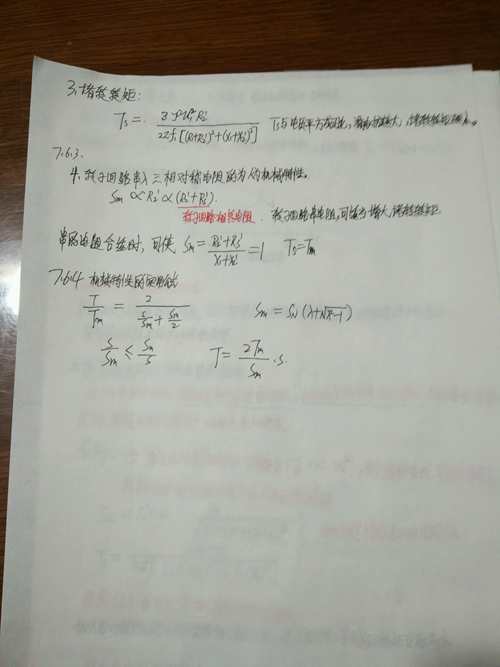 3. 堵转转矩:
Ts = 3pU₁²R₂' / 2πf₁[(R₁+R₂')²+(X₁+X₂')²] Ts与电压平方成正比,
7.6.3.
4. 转子回路串入三相对称电阻的人为机械特性。
Sm ∝ R₂' ∝ (R₂'+Rs').
转子回路相关电阻 . 转子回路串电阻,可 增大堵转转矩
串的电阻合适时, 可使 Sm = (R₂'+Rs') / (X₁+X₂') = 1 Ts=Tm
7.6.4 机械特性的实用公式
T/Tm = 2 / (S/Sm + Sm/2) Sm = SN(λ+√λ²-1)
S/Sm ≤ Sm/S T = 2Tm/Sm · S